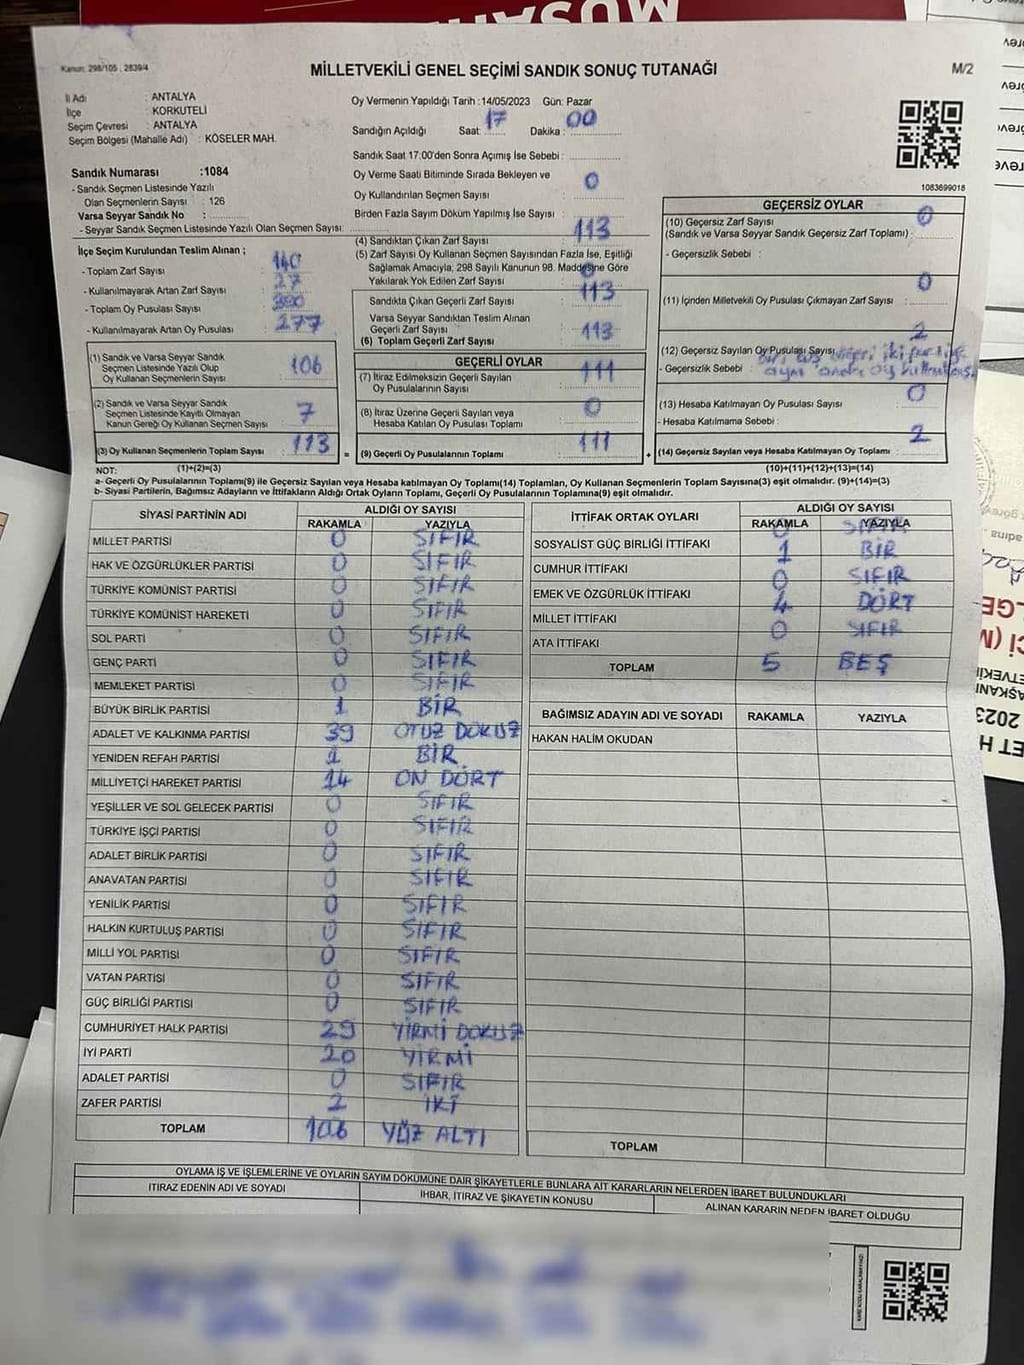 MUSAH
Kanun: 298/105 , 2839/4
MİLLETVEKİLİ GENEL SEÇİMİ SANDIK SONUÇ TUTANAĞI
M/2
İl Adı : ANTALYA
İlçe : KORKUTELİ
Seçim Çevresi : ANTALYA
Seçim Bölgesi (Mahalle Adı) : KÖSELER MAH.
Sandık Numarası :1084
- Sandık Seçmen Listesinde Yazılı
Olan Seçmenlerin Sayısı : 126
Varsa Seyyar Sandık No :
- Seyyar Sandık Seçmen Listesinde Yazılı Olan Seçmen Sayısı:
İlçe Seçim Kurulundan Teslim Alınan ;
- Toplam Zarf Sayısı : 140
- Kullanılmayarak Artan Zarf Sayısı : 27
- Toplam Oy Pusulası Sayısı :
- Kullanılmayarak Artan Oy Pusulası : 277
(1) Sandık ve Varsa Seyyar Sandık
Seçmen Listesinde Yazılı Olup
Oy Kullanan Seçmenlerin Sayısı : 106
(2) Sandık ve Varsa Seyyar Sandık
Seçmen Listesinde Kayıtlı Olmayan
Kanun Gereği Oy Kullanan Seçmen Sayısı : 7
(3) Oy Kullanan Seçmenlerin Toplam Sayısı : 113
Oy Vermenin Yapıldığı Tarih :14/05/2023 Gün: Pazar
Sandığın Açıldığı Saat: 17 Dakika : 00
Sandık Saat 17:00'den Sonra Açımış İse Sebebi :
Oy Verme Saati Bitiminde Sırada Bekleyen ve
Oy Kullandırılan Seçmen Sayısı : 0
Birden Fazla Sayım Döküm Yapılmış İse Sayısı :
(4) Sandıktan Çıkan Zarf Sayısı : 113
(5) Zarf Sayısı Oy Kullanan Seçmen Sayısından Fazla İse, Eşitliği
Sağlamak Amacıyla, 298 Sayılı Kanunun 98. Maddesine Göre
Yakılarak Yok Edilen Zarf Sayısı : 0
Sandıkta Çıkan Geçerli Zarf Sayısı : 113
Varsa Seyyar Sandıktan Teslim Alınan
Geçerli Zarf Sayısı :
(6) Toplam Geçerli Zarf Sayısı : 113
GEÇERLİ OYLAR
(7) İtiraz Edilmeksizin Geçerli Sayılan
Oy Pusulasının Sayısı : 111
(8) İtiraz Üzerine Geçerli Sayılan veya
Hesaba Katılan Oy Pusulası Toplamı : 0
= (9) Geçerli Oy Pusulalarının Toplamı : 111
1083699018
GEÇERSİZ OYLAR
(10) Geçersiz Zarf Sayısı : 0
(Sandık ve Varsa Seyyar Sandık Geçersiz Zarf Toplamı) :
- Geçersizlik Sebebi :
(11) İçinden Milletvekili Oy Pusulası Çıkmayan Zarf Sayısı : 0
(12) Geçersiz Sayılan Oy Pusulası Sayısı : 2
- Geçersizlik Sebebi : Biri boş diğeri iki partiye
aynı anda oy kullanılması
(13) Hesaba Katılmayan Oy Pusulası Sayısı : 0
- Hesaba Katılmama Sebebi :
+ (14) Geçersiz Sayılan veya Hesaba Katılmayan Oy Toplamı : 2
NOT: (1)+(2)=(3) (10)+(11)+(12)+(13)=(14)
a- Geçerli Oy Pusulalarının Toplamı(9) ile Geçersiz Sayılan veya Hesaba katılmayan Oy Toplamı(14) Toplamları, Oy Kullanan Seçmenlerin Toplam Sayısına(3) eşit olmalıdır. (9)+(14)=(3)
b- Siyasi Partilerin, Bağımsız Adayların ve İttifakların Aldığı Ortak Oyların Toplamı, Geçerli Oy Pusulalarının Toplamına(9) eşit olmalıdır.
SİYASİ PARTİNİN ADI ALDIĞI OY SAYISI
RAKAMLA YAZIYLA
MİLLET PARTİSİ 0 SIFIR
HAK VE ÖZGÜRLÜKLER PARTİSİ 0 SIFIR
TÜRKİYE KOMÜNİST PARTİSİ 0 SIFIR
TÜRKİYE KOMÜNİST HAREKETİ 0 SIFIR
SOL PARTİ 0 SIFIR
GENÇ PARTİ 0 SIFIR
MEMLEKET PARTİSİ 0 SIFIR
BÜYÜK BİRLİK PARTİSİ 1 BİR
ADALET VE KALKINMA PARTİSİ 39 OTUZ DOKUZ
YENİDEN REFAH PARTİSİ 1 BİR
MİLLİYETÇİ HAREKET PARTİSİ 14 ON DÖRT
YEŞİLLER VE SOL GELECEK PARTİSİ 0 SIFIR
TÜRKİYE İŞÇİ PARTİSİ 0 SIFIR
ADALET BİRLİK PARTİSİ 0 SIFIR
ANAVATAN PARTİSİ 0 SIFIR
YENİLİK PARTİSİ 0 SIFIR
HALKIN KURTULUŞ PARTİSİ 0 SIFIR
MİLLİ YOL PARTİSİ 0 SIFIR
VATAN PARTİSİ 0 SIFIR
GÜÇ BİRLİĞİ PARTİSİ 0 SIFIR
CUMHURİYET HALK PARTİSİ 29 YİRMİ DOKUZ
İYİ PARTİ 20 YİRMİ
ADALET PARTİSİ 0 SIFIR
ZAFER PARTİSİ 2 İKİ
TOPLAM 106 YÜZ ALTI
İTTİFAK ORTAK OYLARI ALDIĞI OY SAYISI
RAKAMLA YAZIYLA
SOSYALİST GÜÇ BİRLİĞİ İTTİFAKI 0 SIFIR
CUMHUR İTTİFAKI 1 BİR
EMEK VE ÖZGÜRLÜK İTTİFAKI 0 SIFIR
MİLLET İTTİFAKI 4 DÖRT
ATA İTTİFAKI 0 SIFIR
TOPLAM 5 BEŞ
BAĞIMSIZ ADAYIN ADI VE SOYADI RAKAMLA YAZIYLA
HAKAN HALİM OKUDAN
TOPLAM
OYLAMA İŞ VE İŞLEMLERİNE VE OYLARIN SAYIM DÖKÜMÜNE DAİR ŞİKAYETLERLE BUNLARA AİT KARARLARIN NELERDEN İBARET BULUNDUKLARI
İTİRAZ EDENİN ADI VE SOYADI İHBAR, İTİRAZ VE ŞİKAYETİN KONUSU ALINAN KARARIN NEDEN İBARET OLDUĞU